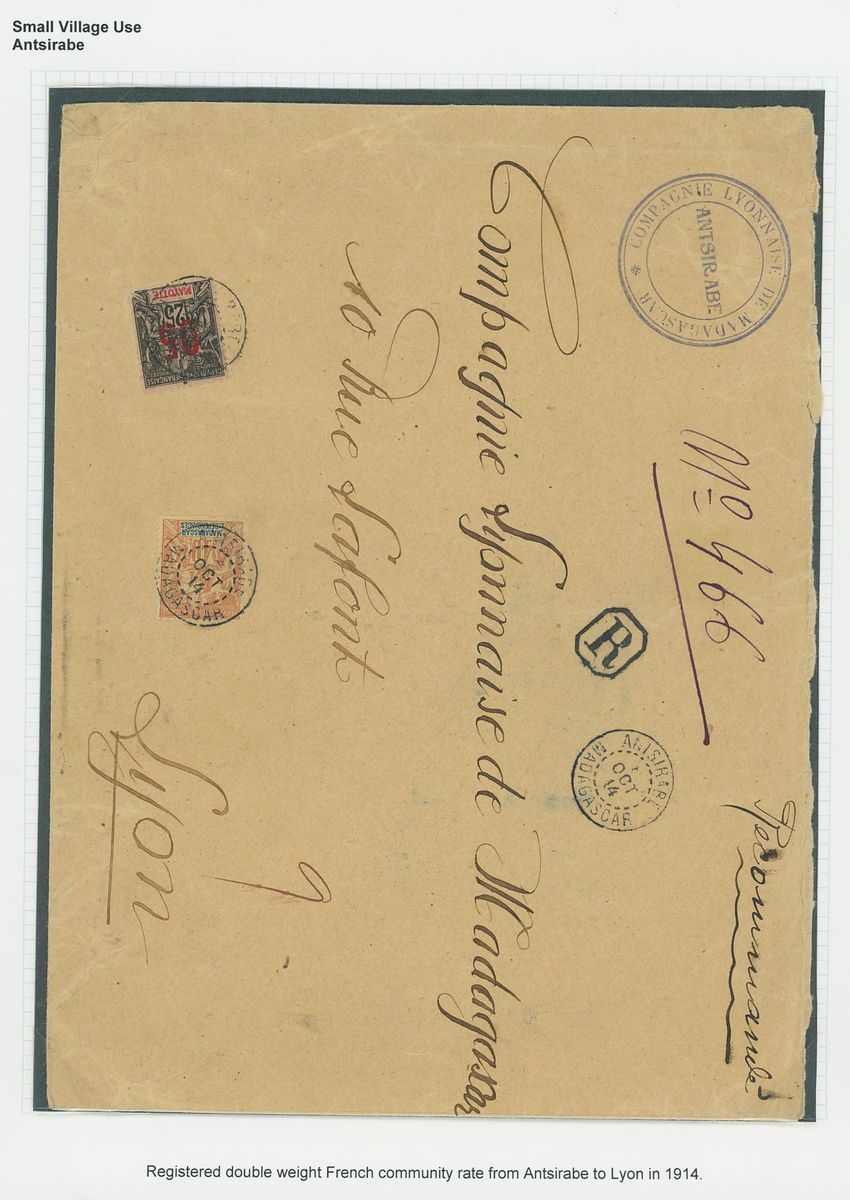 Small Village Use
Antsirabe
* COMPAGNIE LYONNAISE DE MADAGASCAR
ANTSIRABE
No 466
Recommandé
R
ANTSIRABE
OCT
14
MADAGASCAR
Compagnie Lyonnaise de Madagascar
10 Rue Lafont
9
Lyon
MAYOTTE
25
05
RÉPUBLIQUE FRANÇAISE
MADAGASCAR
ET DÉPENDANCES
ANTSIRABE
OCT
14
MADAGASCAR
Registered double weight French community rate from Antsirabe to Lyon in 1914.